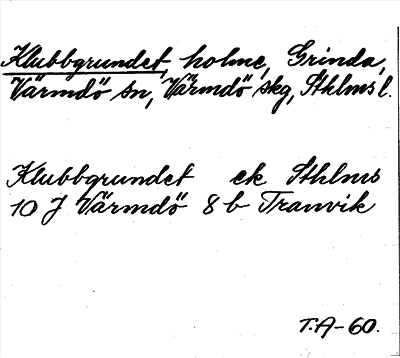 Klubbgrundet, holme, Grinda,
Värmdö sn, Värmdö skg, Sthlms l.
Klubbgrundet ek Sthlms
10 J Värmdö 8 b Tranvik
T.A-60.